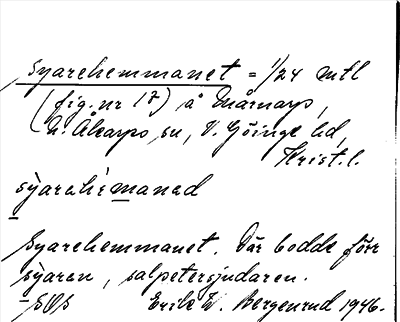 Syarehemmanet = 1/24 mtl
(fig. nr 17) å Mårnarp,
N. Åkarps sn, V. Göinge hd,
Krist. l.
syarehemanad
Syarehemmanet. Där bodde förr
syaren, salpetersjudaren.
Erik W. Bergenrud 1946.